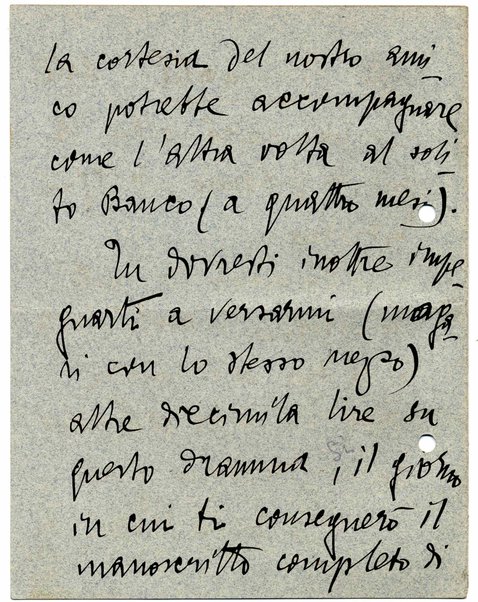 la cortesia del nostro ami
co potrebbe accompagnare
come l'altra volta al soli
to Banco (a quattro mesi).
Tu dovresti inoltre impe
gnarti a versarmi (maga
ri con lo stesso mezzo)
altre diecimila lire su
questo dramma, il giorno
in cui ti consegnerò il
manoscritto completo di